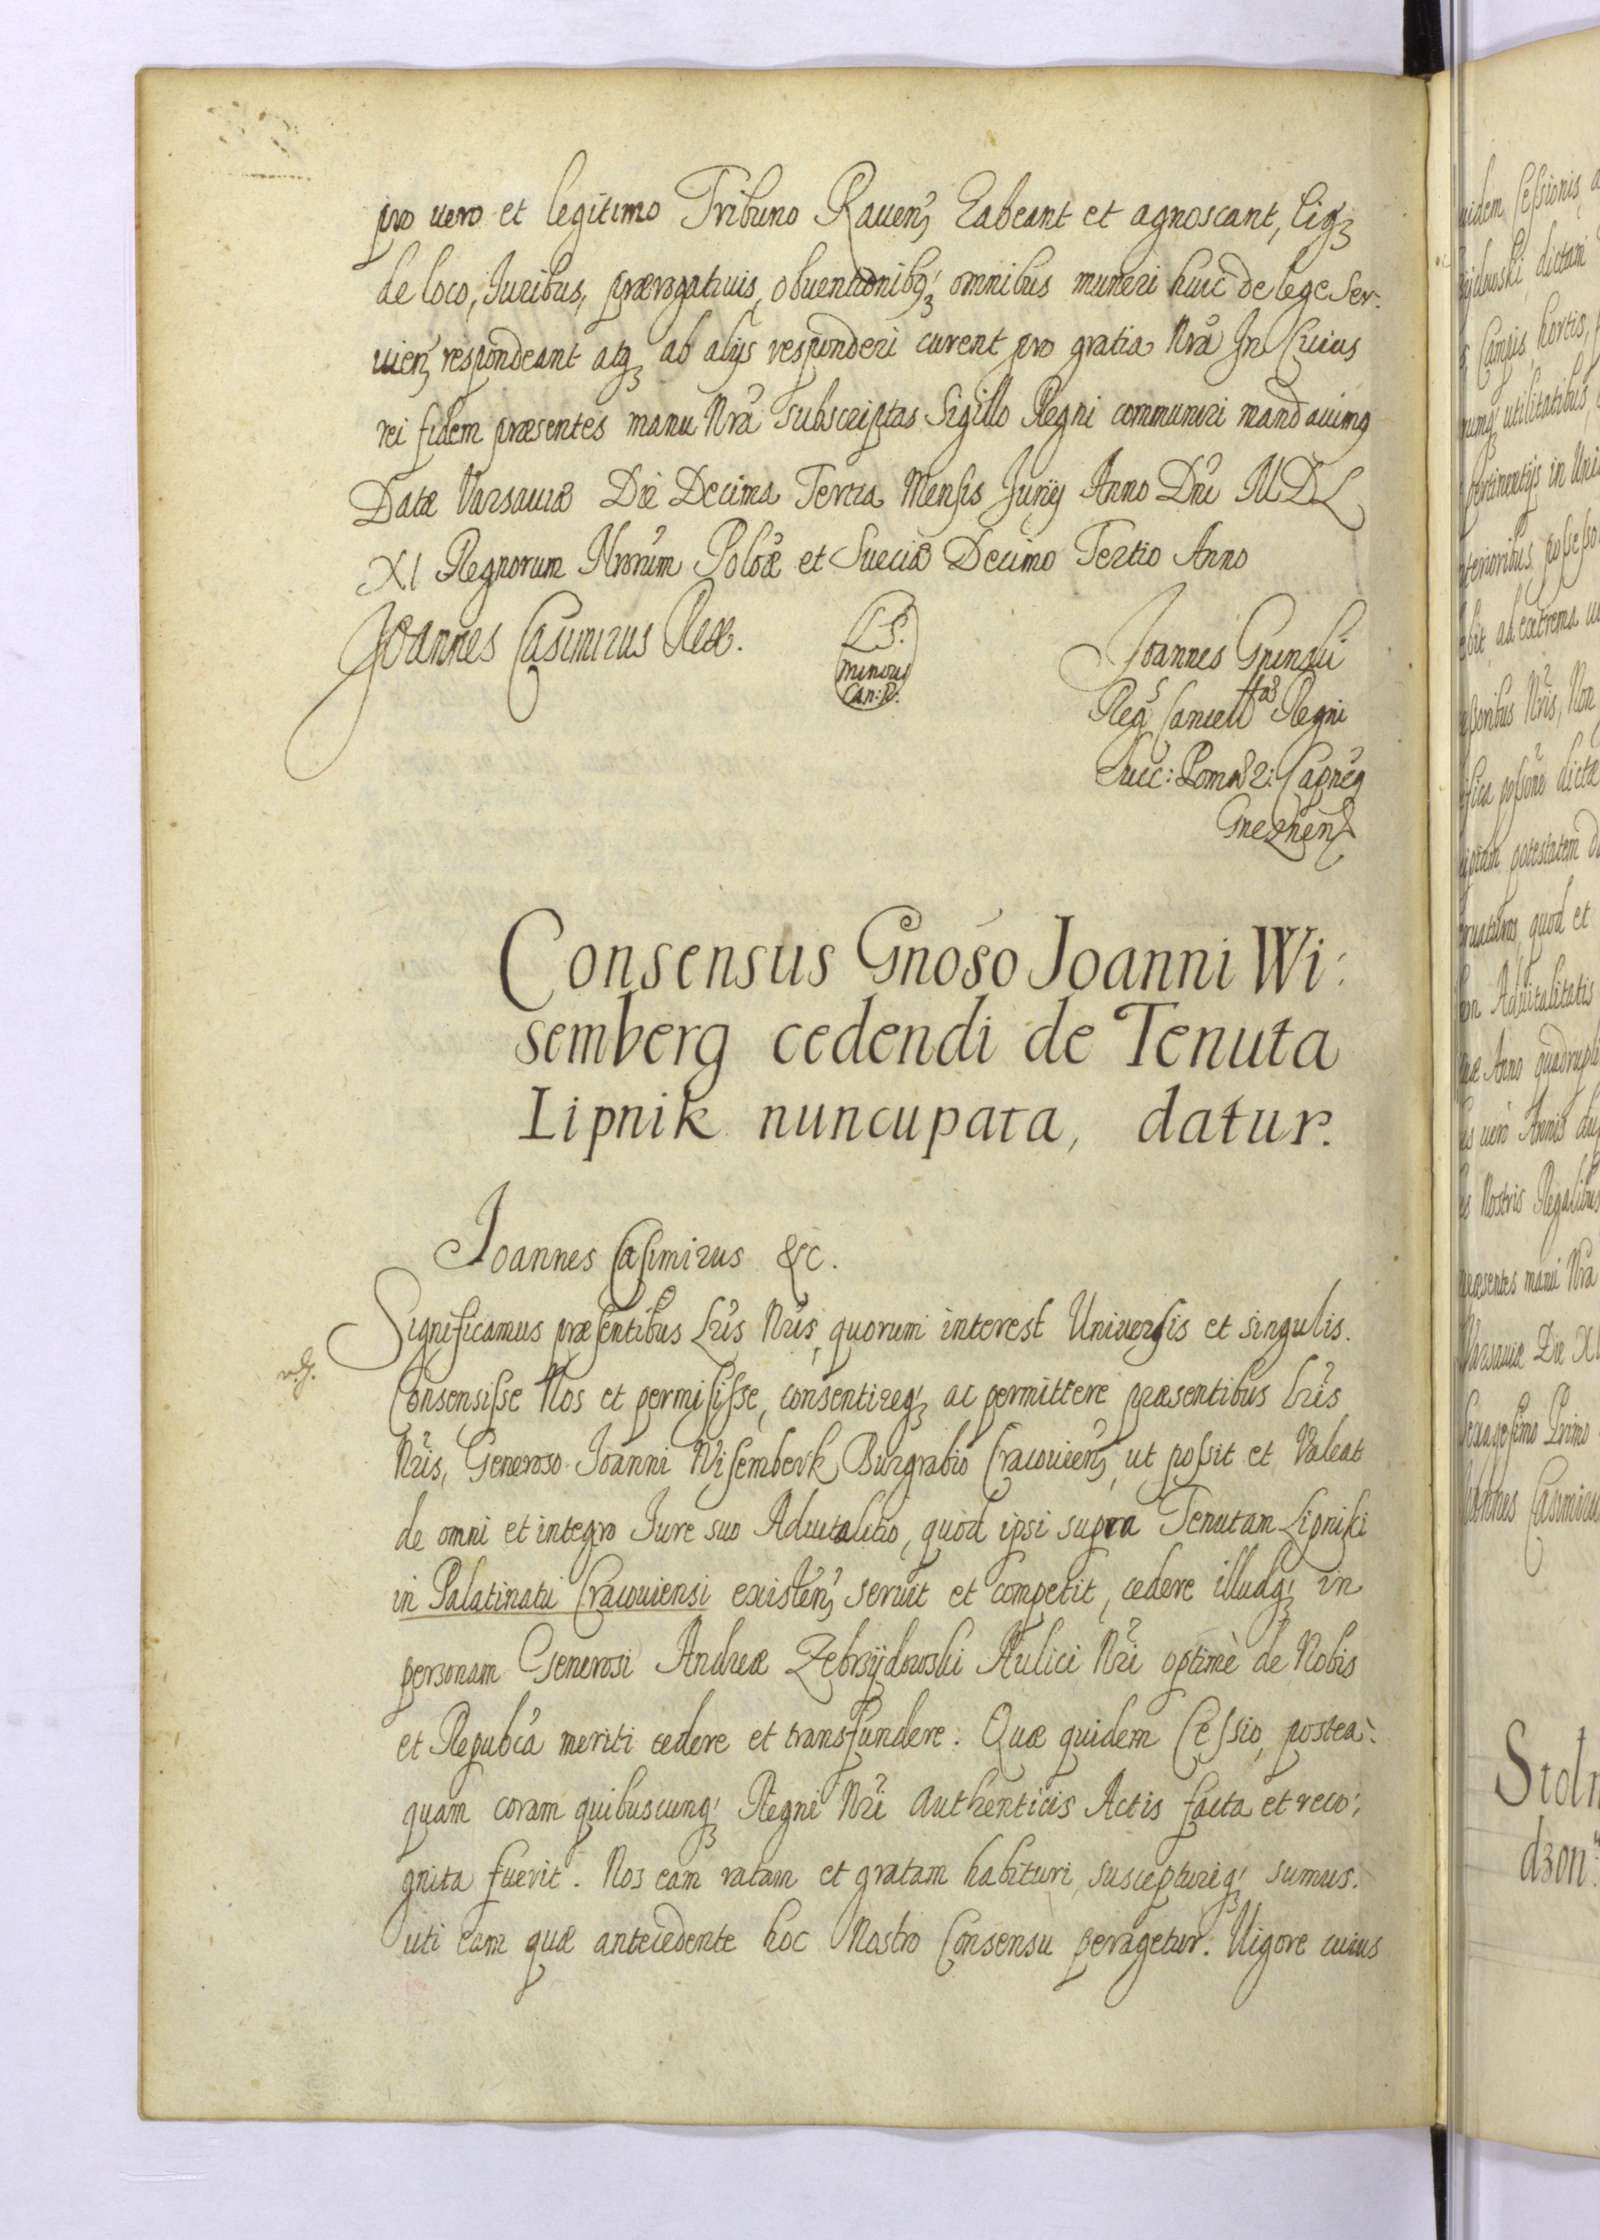 pro uero et legitimo Tribuno Rauenꝫ habeant et agnoscant, Eiqꝫ
de loco, Iuribus, prærogatiuis, obuentionibqꝫ omnibus muneri huic de lege ser-
uienꝫ respondeant atqꝫ ab alijs responderi curent pro gratia Nrã In Cuius
rei fidem præsentes manu Nrã subscriptas Sigillo Regni communiri mandauimq
Datæ Varsauiæ Die Decima Tertia Mensis Iunij Anno Dni MDL
XI Regnorum Nrorum Poloæ et Sueciæ Decimo Tertio Anno
Joannes Casimirus Rex.
LS.
minoris
Can: R.
Joannes
Reg Cancell Regni
Succ: Pom
Gneznen
Consensus Gnoso Joanni Wi:
semberg cedendi de Tenuta
Lipnik nuncupata, datur.
Joannes Casimirus &c.
Significamus præsentibus Lris Nris, quorum interest Universis et singulis.
Consensisse Nos et permisisse, consentireqꝫ ac permittere præsentibus Lris
Nris, Generoso Joanni Wisemberk Burgrabio Cracouienꝫ, ut possit et Valeat
de omni et integro Iure suo Aduitalitio, quod ipsi supra Tenutam Lipniki
in Palatinatu Cracouiensi existenꝫ seruit et competit, cedere illudqꝫ in
personam Generosi Andreæ Zebrzydowski Aulici Nri optimè de Nobis
et Republca meriti cedere et transfundere. Quæ quidem Cessio, postea-
quam coram quibuscunqꝫ Regni Nri Authenticis Actis facta et reco:
gnita fuerit. Nos eam ratam et gratam habituri suscepturiqꝫ sumus.
uti eam quæ antecedente hoc Nostro Consensu peragetur. Vigore cuius
uidem Cessionis
dictam
Campis, hortis,
utilitatibus
pertinentijs in
possesso
ad extrema
Nris, Non
dictæ
potestatem
quod et
Aduitalitatis
Anno quadrupli
uero Annis
Nostris Regalibus
præsentes manu Nra
Varsauiæ Die XI
Sexagesimo Primo
Joannes Casimirus
Stoln
dzon